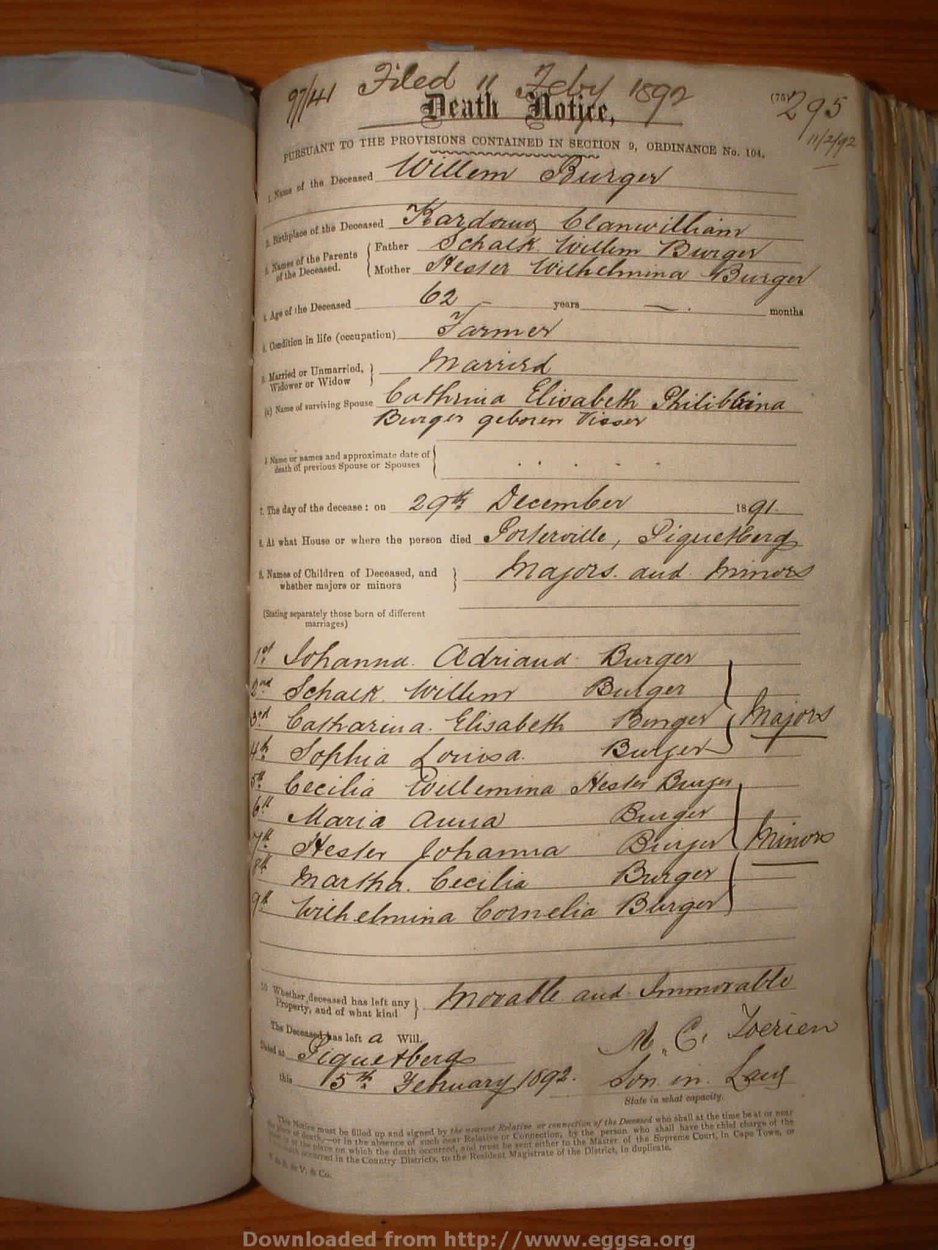 97/141 Filed 11 Feby 1892
(75) 295
11/2/92
Death Notice,
PURSUANT TO THE PROVISIONS CONTAINED IN SECTION 9, ORDINANCE No. 104.
1. Name of the Deceased Willem Burger
2. Birthplace of the Deceased Clanwilliam
3. Names of the Parents of the Deceased. Father Schalk Willem Burger
Mother Hester Wilhelmina Burger
4. Age of the Deceased 62 – years – months
5. Condition in life (occupation) Farmer
6. Married or Unmarried, Widower or Widow } Married
(a) Name of surviving Spouse Cathrina Elisabeth
Burger geboren Visser
Name or names and approximate date of death of previous Spouse or Spouses { . . . . .
7. The day of the decease: on 29th December 1891.
8. At what House or where the person died Porterville, Piquetberg
9. Names of Children of Deceased, and whether majors or minors } Majors and Minors
(Stating separately those born of different marriages)
1st Johanna Adriana Burger
2nd Schalk Willem Burger
3rd Catharina Elisabeth Burger } Majors
4th Sophia Louisa. Burger
5th Cecilia Willemina Hester Burger
6th Maria Anna Burger
7th Hester Johanna Burger } Minors
8th Martha Cecilia Burger
9th Wilhelmina Cornelia Burger
10. Whether deceased has left any Property, and of what kind } Movable and Immovable
The Deceased has left a Will.
M. C. Zoerien
Dated at Piquetberg
this 5th February 1892. Son in Law
State in what capacity.
This Notice must be filled up and signed by the nearest Relative or connection of the Deceased who shall at the time be at or near
the place of death,—or in the absence of such near Relative or Connection, by the person who shall have the chief charge of the
house or of the place on which the death occurred, and must be sent either to the Master of the Supreme Court, in Cape Town, or
if the death occurred in the Country Districts, to the Resident Magistrate of the District, in duplicate.
de V. & Co.
Downloaded from http://www.eggsa.org